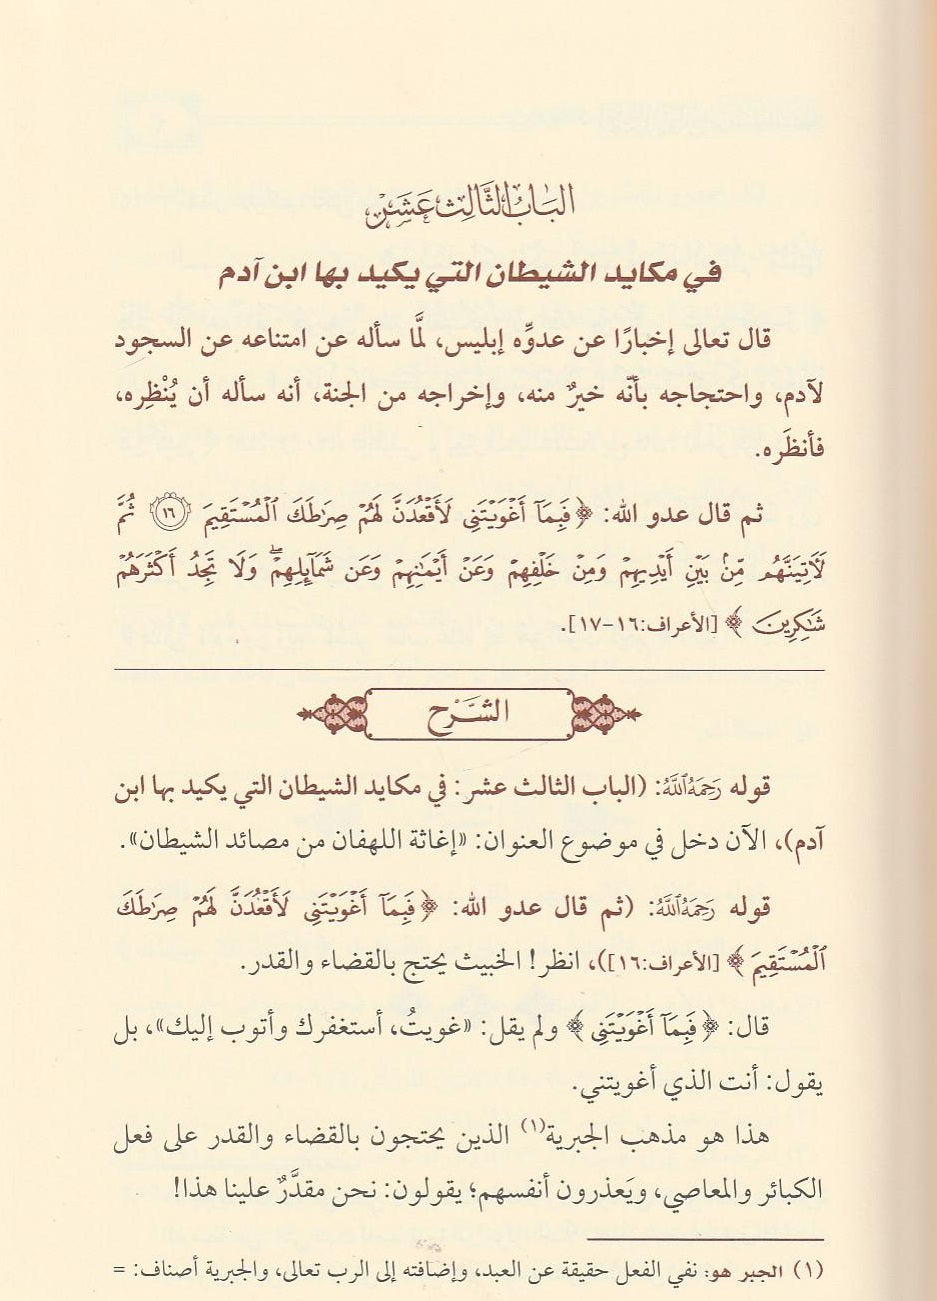 الباب الثالث عشر
في مكايد الشيطان التي يكيد بها ابن آدم
قال تعالى إخبارًا عن عدوِّه إبليس، لمَّا سأله عن امتناعه عن السجود
لآدم، واحتجاجه بأنّه خيرٌ منه، وإخراجه من الجنة، أنه سأله أن يُنْظِره،
فأنظَره.
ثم قال عدو الله: ﴿فَبِمَآ أَغْوَيْتَنِى لَأَقْعُدَنَّ لَهُمْ صِرَٰطَكَ ٱلْمُسْتَقِيمَ ١٦ ثُمَّ
لَءَاتِيَنَّهُم مِّنۢ بَيْنِ أَيْدِيهِمْ وَمِنْ خَلْفِهِمْ وَعَنْ أَيْمَٰنِهِمْ وَعَن شَمَآئِلِهِمْ ۖ وَلَا تَجِدُ أَكْثَرَهُمْ
شَٰكِرِينَ﴾ [الأعراف:١٦-١٧].
الشَّرح
قوله رَحِمَهُ ٱللَّهُ: (الباب الثالث عشر: في مكايد الشيطان التي يكيد بها ابن
آدم)، الآن دخل في موضوع العنوان: «إغاثة اللهفان من مصائد الشيطان».
قوله رَحِمَهُ ٱللَّهُ: (ثم قال عدو الله: ﴿فَبِمَآ أَغْوَيْتَنِى لَأَقْعُدَنَّ لَهُمْ صِرَٰطَكَ
ٱلْمُسْتَقِيمَ﴾ [الأعراف:١٦])، انظر! الخبيث يحتج بالقضاء والقدر.
قال: ﴿فَبِمَآ أَغْوَيْتَنِى﴾ ولم يقل: «غويتُ، أستغفرك وأتوب إليك»، بل
يقول: أنت الذي أغويتني.
هذا هو مذهب الجبرية(١) الذين يحتجون بالقضاء والقدر على فعل
الكبائر والمعاصي، ويَعذرون أنفسهم؛ يقولون: نحن مقدَّرٌ علينا هذا!
(١) الجبر هو: نفي الفعل حقيقة عن العبد، وإضافته إلى الرب تعالى، والجبرية أصناف: =